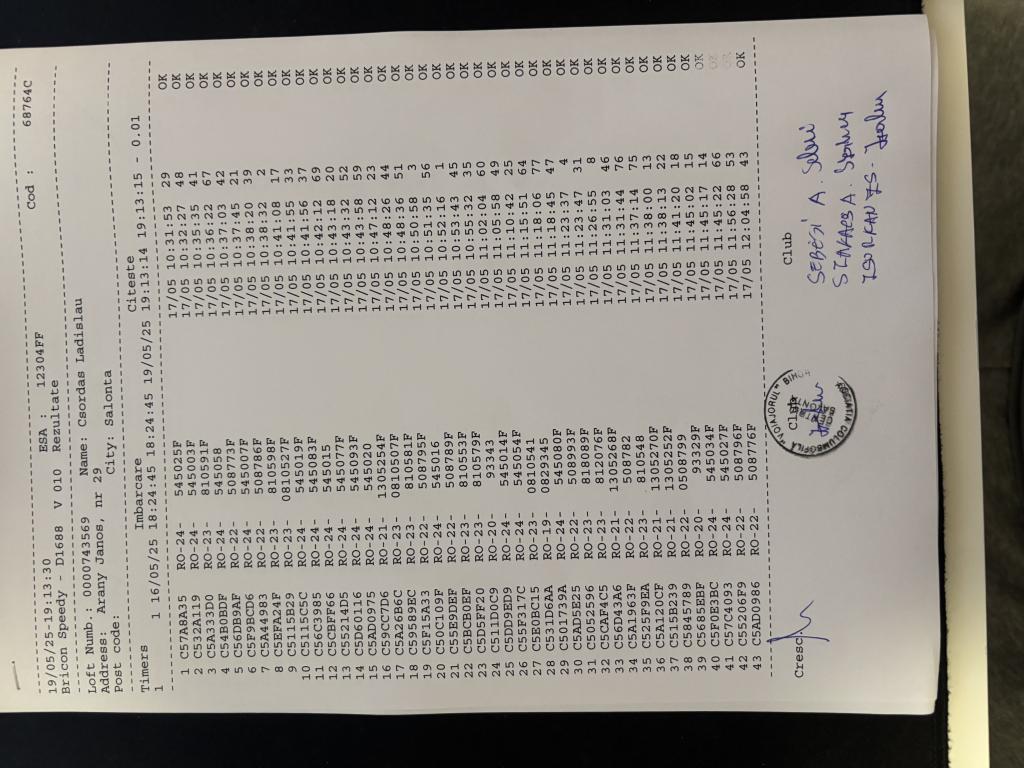 19/05/25-19:13:30 ESA : 12304FF Cod : 68764C
Bricon Speedy - D1688 V 010 Rezultate
Loft Numb.: 0000743569 Name: Csordas Ladislau
Address: Arany Janos, nr 29
Post code: City: Salonta
Timers Imbarcare Citeste
1 1 16/05/25 18:24:45 18:24:45 19/05/25 19:13:14 19:13:15 - 0.01
1 C57A8A35 RO-24- 545025F 17/05 10:31:53 29 OK
2 C532A119 RO-24- 545003F 17/05 10:32:27 48 OK
3 C5A133D0 RO-23- 810591F 17/05 10:35:35 41 OK
4 C54B0BDF RO-24- 545058 17/05 10:36:22 67 OK
5 C56DB9AF RO-22- 508773F 17/05 10:37:03 42 OK
6 C5F9BCD6 RO-24- 545007F 17/05 10:37:45 21 OK
7 C5A44983 RO-22- 508786F 17/05 10:38:20 39 OK
8 C5EFA24F RO-23- 810598F 17/05 10:38:32 2 OK
9 C5115B29 RO-23- 0810527F 17/05 10:41:08 17 OK
10 C5115C5C RO-24- 545019F 17/05 10:41:55 33 OK
11 C56C3985 RO-24- 545083F 17/05 10:41:56 37 OK
12 C5CBFF66 RO-24- 545015 17/05 10:42:12 69 OK
13 C55214D5 RO-24- 545077F 17/05 10:43:18 20 OK
14 C5D60116 RO-24- 545093F 17/05 10:43:32 52 OK
15 C5AD0975 RO-24- 545020 17/05 10:43:58 59 OK
16 C59CC7D6 RO-21- 1305254F 17/05 10:47:12 23 OK
17 C5A26B6C RO-23- 0810507F 17/05 10:48:26 44 OK
18 C59589EC RO-23- 810581F 17/05 10:48:36 51 OK
19 C5F15A33 RO-22- 508795F 17/05 10:50:58 3 OK
20 C50C109F RO-24- 545016 17/05 10:51:35 56 OK
21 C55E9DEF RO-22- 508789F 17/05 10:52:16 1 OK
22 C5BCB0EF RO-23- 810553F 17/05 10:53:43 45 OK
23 C5D5FF20 RO-23- 810579F 17/05 10:55:32 35 OK
24 C511D0C9 RO-20- 93343 17/05 11:02:04 60 OK
25 C5DD9ED9 RO-24- 545014F 17/05 11:05:58 49 OK
26 C55F317C RO-24- 545054F 17/05 11:10:42 25 OK
27 C5E0BC15 RO-23- 0810541 17/05 11:15:51 64 OK
28 C531D6AA RO-19- 0829345 17/05 11:18:06 77 OK
29 C501739A RO-24- 545080F 17/05 11:18:45 47 OK
30 C5AD5E25 RO-22- 508993F 17/05 11:23:37 4 OK
31 C5052596 RO-23- 818089F 17/05 11:23:47 31 OK
32 C5CAF4C5 RO-23- 812076F 17/05 11:26:55 8 OK
33 C56D43A6 RO-21- 1305268F 17/05 11:31:03 46 OK
34 C5A1963F RO-22- 508782 17/05 11:31:44 76 OK
35 C525F9EA RO-23- 810548 17/05 11:37:14 75 OK
36 C5A120CF RO-21- 1305270F 17/05 11:38:00 13 OK
37 C515B239 RO-21- 1305252F 17/05 11:38:13 22 OK
38 C5845789 RO-22- 0508799 17/05 11:41:20 18 OK
39 C5685EBF RO-20- 93329F 17/05 11:45:02 15 OK
40 C5F0B3BC RO-24- 545034F 17/05 11:45:17 14 OK
41 C57C4093 RO-24- 545027F 17/05 11:45:22 66 OK
42 C55206F9 RO-22- 508796F 17/05 11:56:28 53 OK
43 C5AD0986 RO-22- 508776F 17/05 12:04:58 43 OK
Crescator Club Club
"VOIAJORUL" BIHOR
COLUMBOFILA
SEBESI A.